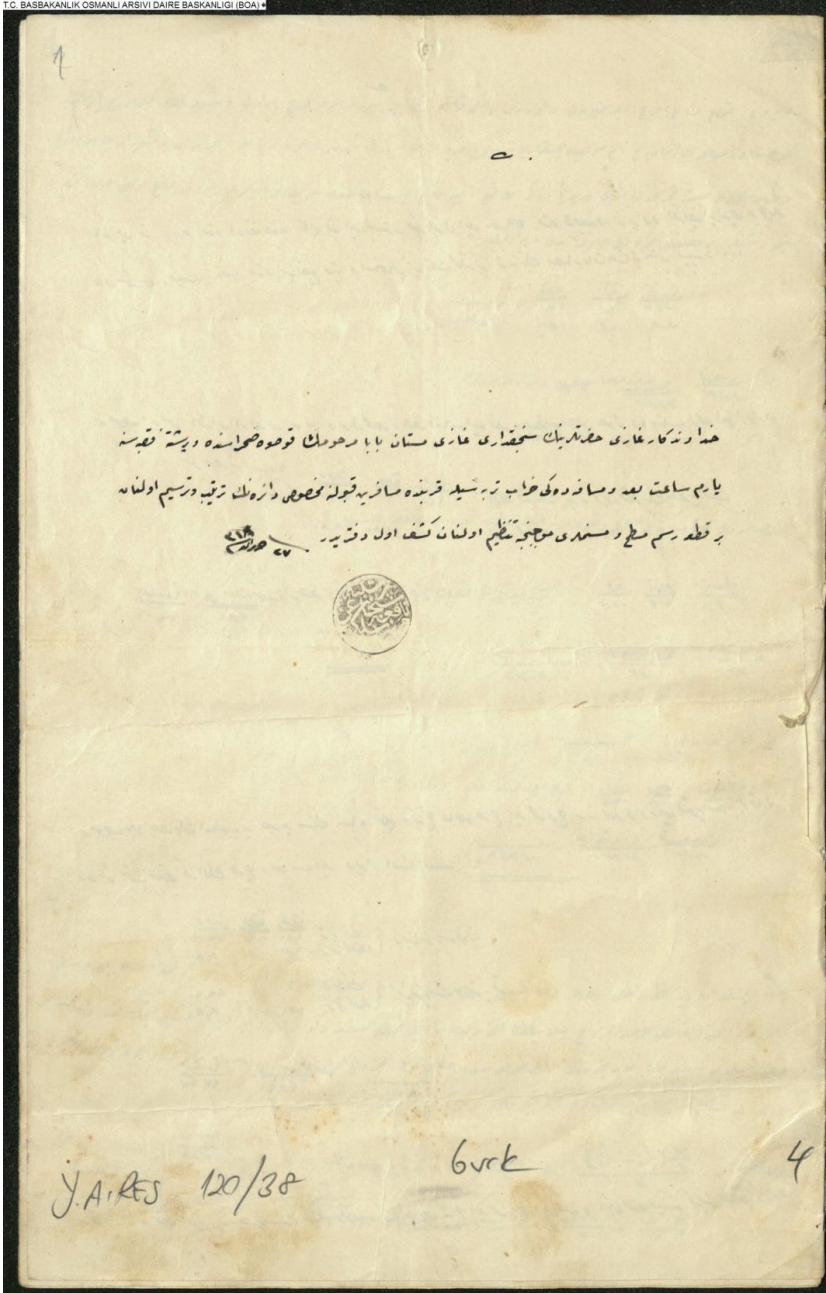 T.C. BASBAKANLIK OSMANLI ARSIVI DAIRE BASKANLIGI (BOA)
1
خداوندکار غازی حضرتلرینك سنجقداری غازی مستان بابا مرحومك قوصوه صحراسنده و پرشتنه قصبه‌سنه
یارم ساعت بعد و مسافه‌ده‌کی خراب تربه‌سیله قربنده مسافرین قبولنه مخصوص دائره‌نك ترتیب و ترسیم اولنان
بر قطعه رسم مسطح و موجبنجه تنظیم اولنان کشف اول دفتریدر
٢٧
Y.A.RES 120/38
6vrk
4